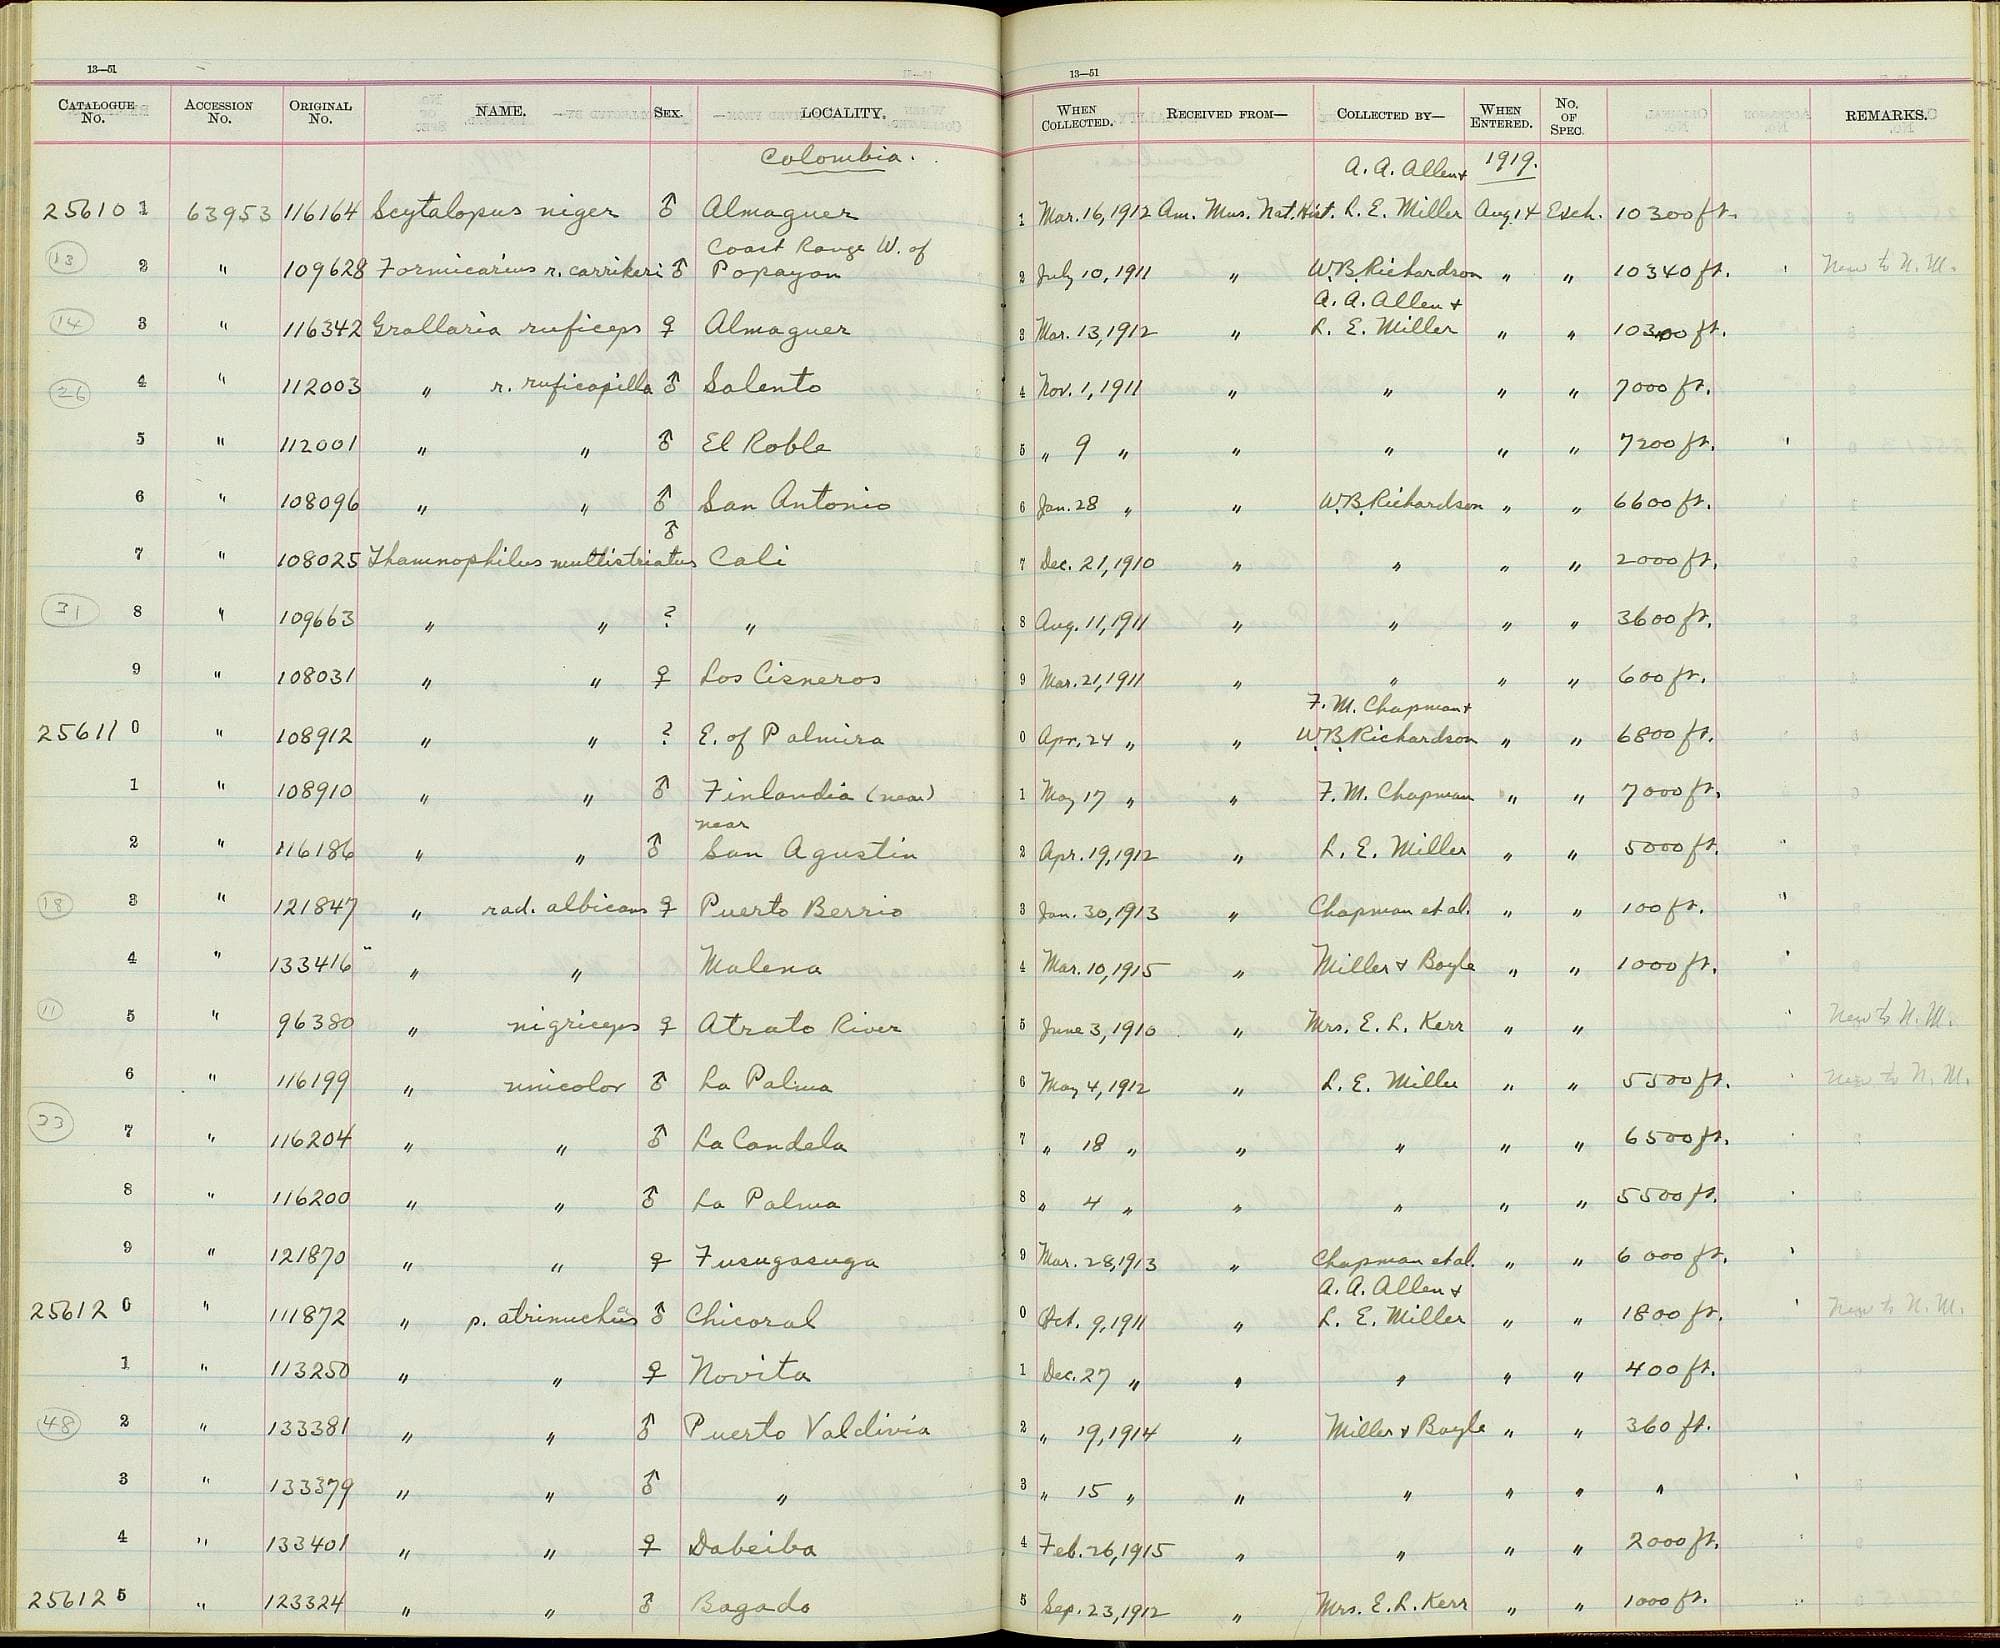 13—51
13—51
CATALOGUE No. ACCESSION No. ORIGINAL No. NAME. SEX. LOCALITY. WHEN COLLECTED. RECEIVED FROM— COLLECTED BY— WHEN ENTERED. NO. OF SPEC. REMARKS.
Colombia. A. A. Allen & 1919.
25610 1 63953 116164 Scytalopus niger ♂ Almaguer 1 Mar. 16, 1912 Am. Mus. Nat. Hist. L. E. Miller Aug 14 Exch. 10300 ft.
Coast Range W. of
(13) 2 " 109628 Formicarius r. carrikeri ♂ Popayan 2 July 10, 1911 " W. B. Richardson " " 10340 ft. New to N. M.
A. A. Allen &
(14) 3 " 116342 Grallaria ruficeps ♀ Almaguer 3 Mar. 13, 1912 " L. E. Miller " " 10300 ft.
(26) 4 " 112003 " r. ruficapilla ♂ Salento 4 Nov. 1, 1911 " " " " 7000 ft.
5 " 112001 " " ♂ El Roble 5 " 9 " " " " " 7200 ft.
6 " 108096 " " ♂ San Antonio 6 Jan. 28 " " W. B. Richardson " " 6600 ft.
7 " 108025 Thamnophilus multistriatus ♂ Cali 7 Dec. 21, 1910 " " " " 2000 ft.
(31) 8 " 109663 " " ? " 8 Aug. 11, 1911 " " " " 3600 ft.
9 " 108031 " " ♀ Los Cisneros 9 Mar. 21, 1911 " " " " 600 ft.
F. M. Chapman &
25611 0 " 108912 " " ? E. of Palmira 0 Apr. 24 " " W. B. Richardson " " 6800 ft.
1 " 108910 " " ♂ Finlandia (near) 1 May 17 " " F. M. Chapman " " 7000 ft.
near
2 " 116186 " " ♂ San Agustin 2 Apr. 19, 1912 " L. E. Miller " " 5000 ft.
(18) 3 " 121847 " rad. albicans ♀ Puerto Berrio 3 Jan. 30, 1913 " Chapman et al. " " 100 ft.
4 " 133416 " " Malena 4 Mar. 10, 1915 " Miller & Boyle " " 1000 ft.
(11) 5 " 96380 " nigriceps ♀ Atrato River 5 June 3, 1910 " Mrs. E. L. Kerr " " New to N. M.
6 " 116199 " unicolor ♂ La Palma 6 May 4, 1912 " L. E. Miller " " 5500 ft. New to N. M.
(23) 7 " 116204 " " ♂ La Candela 7 " 18 " " " " " 6500 ft.
8 " 116200 " " ♂ La Palma 8 " 4 " " " " " 5500 ft.
9 " 121870 " " ♀ Fusugasuga 9 Mar. 28, 1913 " Chapman et al. " " 6000 ft.
A. A. Allen &
25612 0 " 111872 " p. atrinuchus ♂ Chicoral 0 Oct. 9, 1911 " L. E. Miller " " 1800 ft. New to N. M.
1 " 113250 " " ♀ Novita 1 Dec. 27 " " " " " 400 ft.
(48) 2 " 133381 " " ♂ Puerto Valdivia 2 " 19, 1914 " Miller & Boyle " " 360 ft.
3 " 133379 " " ♂ " 3 " 15 " " " " " "
4 " 133401 " " ♀ Dabeiba 4 Feb. 26, 1915 " " " " 2000 ft.
25612 5 " 123324 " " ♂ Bagado 5 Sep. 23, 1912 " Mrs. E. L. Kerr " " 1000 ft.